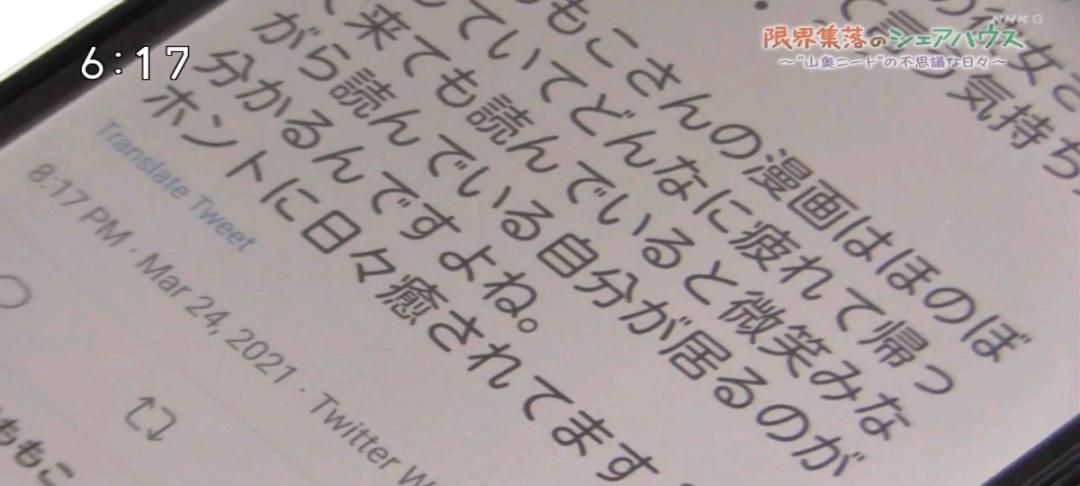 6:17
NHK G
限界集落のシェアハウス
～“山奥ニート”の不思議な日々～
もこさんの漫画はほのぼ
していてどんなに疲れて帰っ
て来ても読んでいると微笑みな
がら読んでいる自分が居るのが
分かるんですよね。
ホントに日々癒されてます
Translate Tweet
8:17 PM · Mar 24, 2021 · Twitter W
ももこ
て言う気持ち